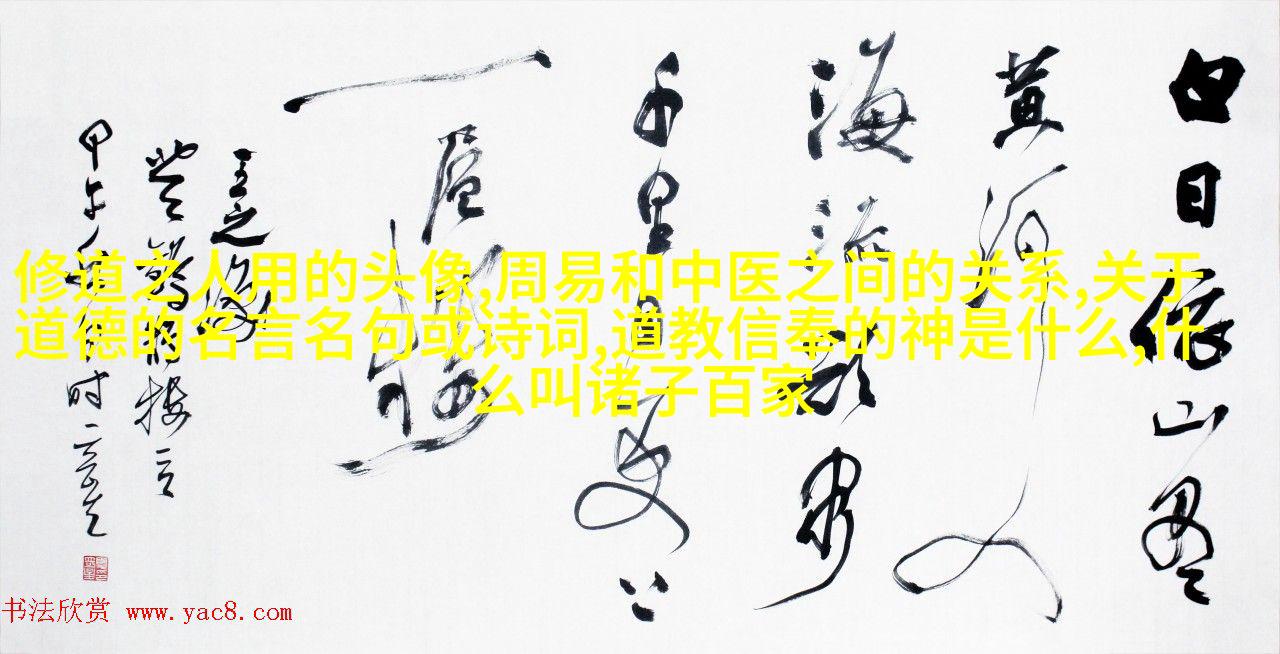 白日依山尽
黄河入
海流欲穷
千里目更上
一层楼
王之涣
登鹳雀楼
甲午年
时
修道之人用的头像,周易和中医之间的关系,关于
道德的名言名句或诗词,道教信奉的神是什么,什
么叫诸子百家
书法欣赏 www.yac8.com